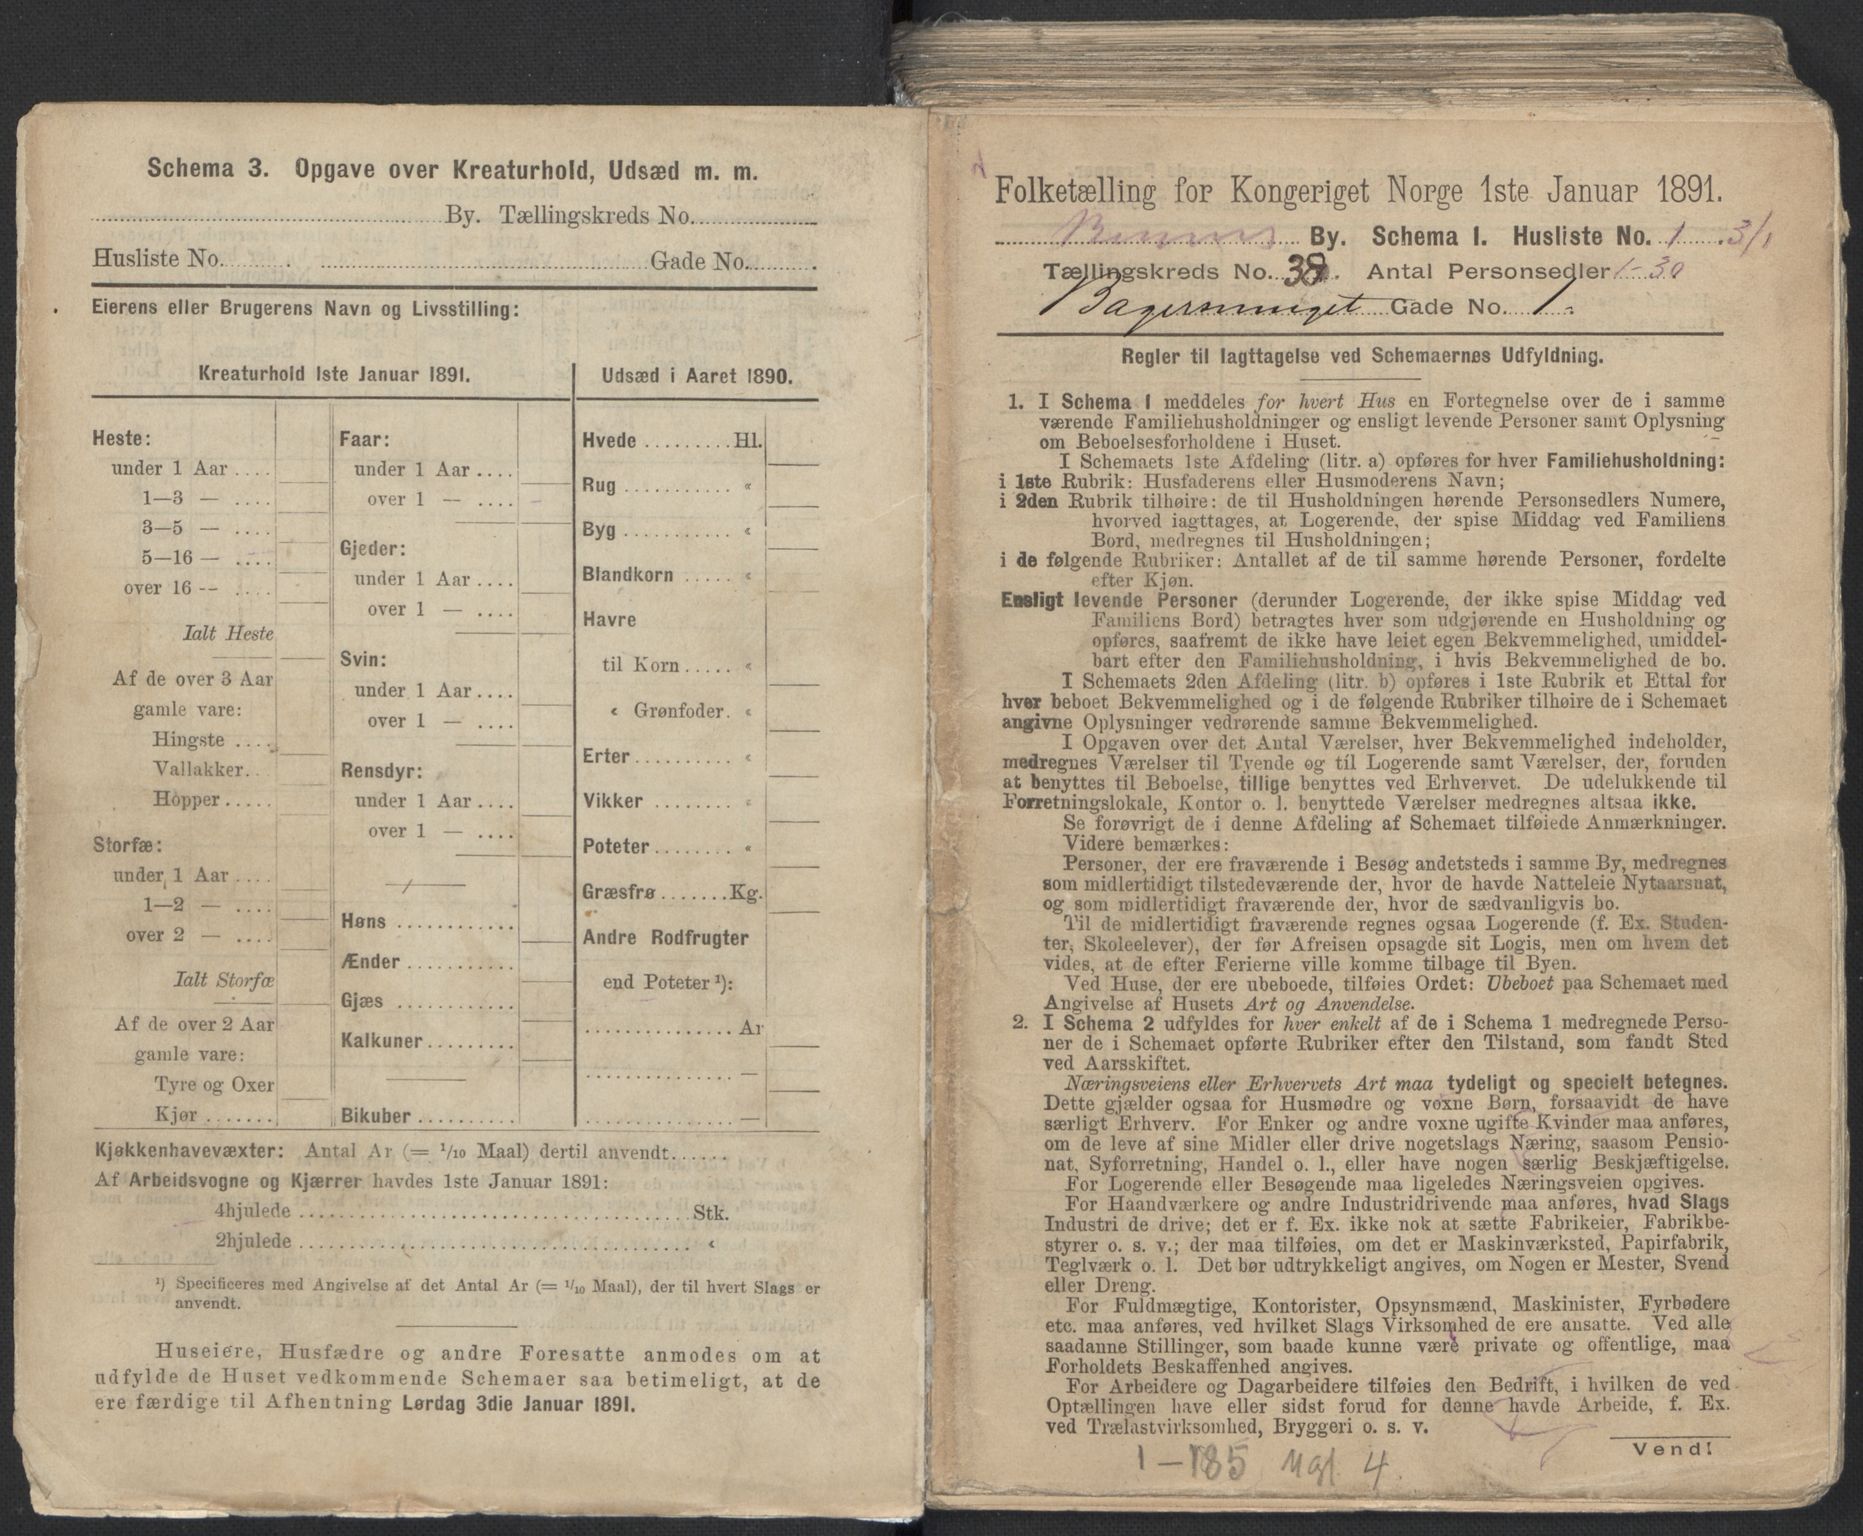 Schema 3. Opgave over Kreaturhold, Udsæd m. m.
By. Tællingskreds No.
Husliste No. Gade No.
Eierens eller Brugerens Navn og Livsstilling:
Kreaturhold 1ste Januar 1891.
Heste:
under 1 Aar
1—3 —
3—5 —
5—16 —
over 16 —
Ialt Heste
Af de over 3 Aar
gamle vare:
Hingste
Vallakker
Hopper
Storfæ:
under 1 Aar
1—2 —
over 2 —
Ialt Storfæ
Af de over 2 Aar
gamle vare:
Tyre og Oxer
Kjør
Faar:
under 1 Aar
over 1 —
Gjeder:
under 1 Aar
over 1 —
Svin:
under 1 Aar
over 1 —
Rensdyr:
under 1 Aar
over 1 —
Høns
Ænder
Gjæs
Kalkuner
Bikuber
Udsæd i Aaret 1890.
Hvede Hl.
Rug «
Byg «
Blandkorn «
Havre
til Korn «
« Grønfoder «
Erter «
Vikker «
Poteter «
Græsfrø Kg.
Andre Rodfrugter
end Poteter ¹):
Ar
—
—
Kjøkkenhavevæxter: Antal Ar (= 1/10 Maal) dertil anvendt
Af Arbeidsvogne og Kjærrer havdes 1ste Januar 1891:
4hjulede Stk.
2hjulede «
¹) Specificeres med Angivelse af det Antal Ar (= 1/10 Maal), der til hvert Slags er
anvendt.
Huseiere, Husfædre og andre Foresatte anmodes om at
udfylde de Huset vedkommende Schemaer saa betimeligt, at de
ere færdige til Afhentning Lørdag 3die Januar 1891.
Folketælling for Kongeriget Norge 1ste Januar 1891.
By. Schema 1. Husliste No. 1 3/1
Tællingskreds No. 38. Antal Personsedler 1-30
Gade No. 1.
Regler til Iagttagelse ved Schemaernes Udfyldning.
1. I Schema 1 meddeles for hvert Hus en Fortegnelse over de i samme
værende Familiehusholdninger og ensligt levende Personer samt Oplysning
om Beboelsesforholdene i Huset.
I Schemaets 1ste Afdeling (litr. a) opføres for hver Familiehusholdning:
i 1ste Rubrik: Husfaderens eller Husmoderens Navn;
i 2den Rubrik tilhøire: de til Husholdningen hørende Personsedlers Numere,
hvorved iagttages, at Logerende, der spise Middag ved Familiens
Bord, medregnes til Husholdningen;
i de følgende Rubriker: Antallet af de til samme hørende Personer, fordelte
efter Kjøn.
Ensligt levende Personer (derunder Logerende, der ikke spise Middag ved
Familiens Bord) betragtes hver som udgjørende en Husholdning og
opføres, saafremt de ikke have leiet egen Bekvemmelighed, umiddel-
bart efter den Familiehusholdning, i hvis Bekvemmelighed de bo.
I Schemaets 2den Afdeling (litr. b) opføres i 1ste Rubrik et Ettal for
hver beboet Bekvemmelighed og i de følgende Rubriker tilhøire de i Schemaet
angivne Oplysninger vedrørende samme Bekvemmelighed.
I Opgaven over det Antal Værelser, hver Bekvemmelighed indeholder,
medregnes Værelser til Tyende og til Logerende samt Værelser, der, foruden
at benyttes til Beboelse, tillige benyttes ved Erhvervet. De udelukkende til
Forretningslokale, Kontor o. l. benyttede Værelser medregnes altsaa ikke.
Se forøvrigt de i denne Afdeling af Schemaet tilføiede Anmærkninger.
Videre bemærkes:
Personer, der ere fraværende i Besøg andetsteds i samme By, medregnes
som midlertidigt tilstedeværende der, hvor de havde Natteleie Nytaarsnat,
og som midlertidigt fraværende der, hvor de sædvanligvis bo.
Til de midlertidigt fraværende regnes ogsaa Logerende (f. Ex. Studen-
ter, Skoleelever), der før Afreisen opsagde sit Logis, men om hvem det
vides, at de efter Ferierne ville komme tilbage til Byen.
Ved Huse, der ere ubeboede, tilføies Ordet: Ubeboet paa Schemaet med
Angivelse af Husets Art og Anvendelse.
2. I Schema 2 udfyldes for hver enkelt af de i Schema 1 medregnede Perso-
ner de i Schemaet opførte Rubriker efter den Tilstand, som fandt Sted
ved Aarsskiftet.
Næringsveiens eller Erhvervets Art maa tydeligt og specielt betegnes.
Dette gjælder ogsaa for Husmødre og voxne Børn, forsaavidt de have
særligt Erhverv. For Enker og andre voxne ugifte Kvinder maa anføres,
om de leve af sine Midler eller drive nogetslags Næring, saasom Pensio-
nat, Syforretning, Handel o. l., eller have nogen særlig Beskjæftigelse.
For Logerende eller Besøgende maa ligeledes Næringsveien opgives.
For Haandværkere og andre Industridrivende maa anføres, hvad Slags
Industri de drive; det er f. Ex. ikke nok at sætte Fabrikeier, Fabrikbe-
styrer o. s. v.; der maa tilføies, om det er Maskinværksted, Papirfabrik,
Teglværk o. l. Det bør udtrykkeligt angives, om Nogen er Mester, Svend
eller Dreng.
For Fuldmægtige, Kontorister, Opsynsmænd, Maskinister, Fyrbødere
etc. maa anføres, ved hvilket Slags Virksomhed de ere ansatte. Ved alle
saadanne Stillinger, som baade kunne være private og offentlige, maa
Forholdets Beskaffenhed angives.
For Arbeidere og Dagarbeidere tilføies den Bedrift, i hvilken de ved
Optællingen have eller sidst forud for denne havde Arbeide, f. Ex.
ved Trælastvirksomhed, Bryggeri o. s. v.
Vend!
1-185 Mgl. 4